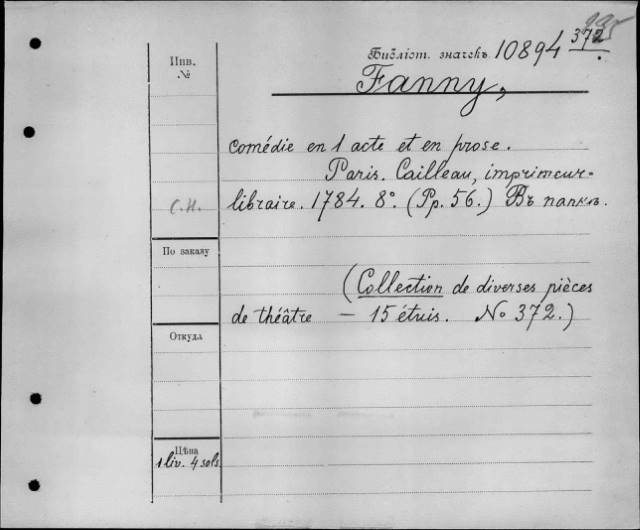 Инв.
№
Библіот. значекъ 10894 372
Fanny,
comédie en 1 acte et en prose.
Paris. Cailleau, imprimeur-
С.Н. libraire. 1784. 8º. (Pp. 56.) Въ папкѣ.
По заказу
(Collection de diverses pièces
de théâtre — 15 étuis. № 372.)
Откуда
Цѣна
1 liv. 4 sols